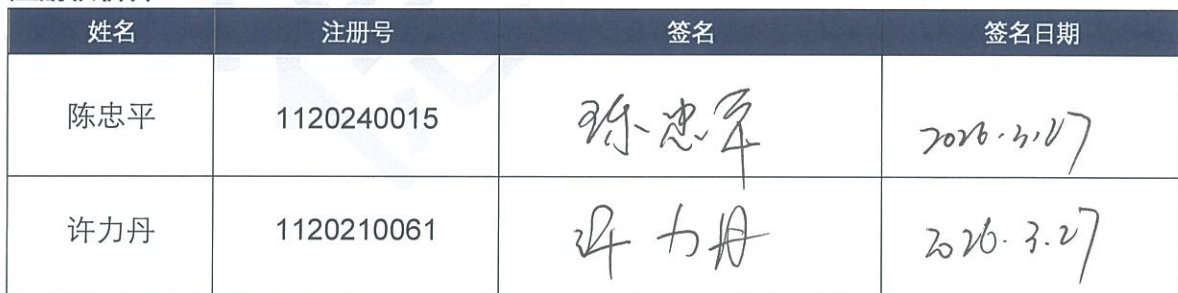 姓名 注册号 签名 签名日期
陈忠平 1120240015 陈忠平 2026.3.27
许力丹 1120210061 许力丹 2026.3.27